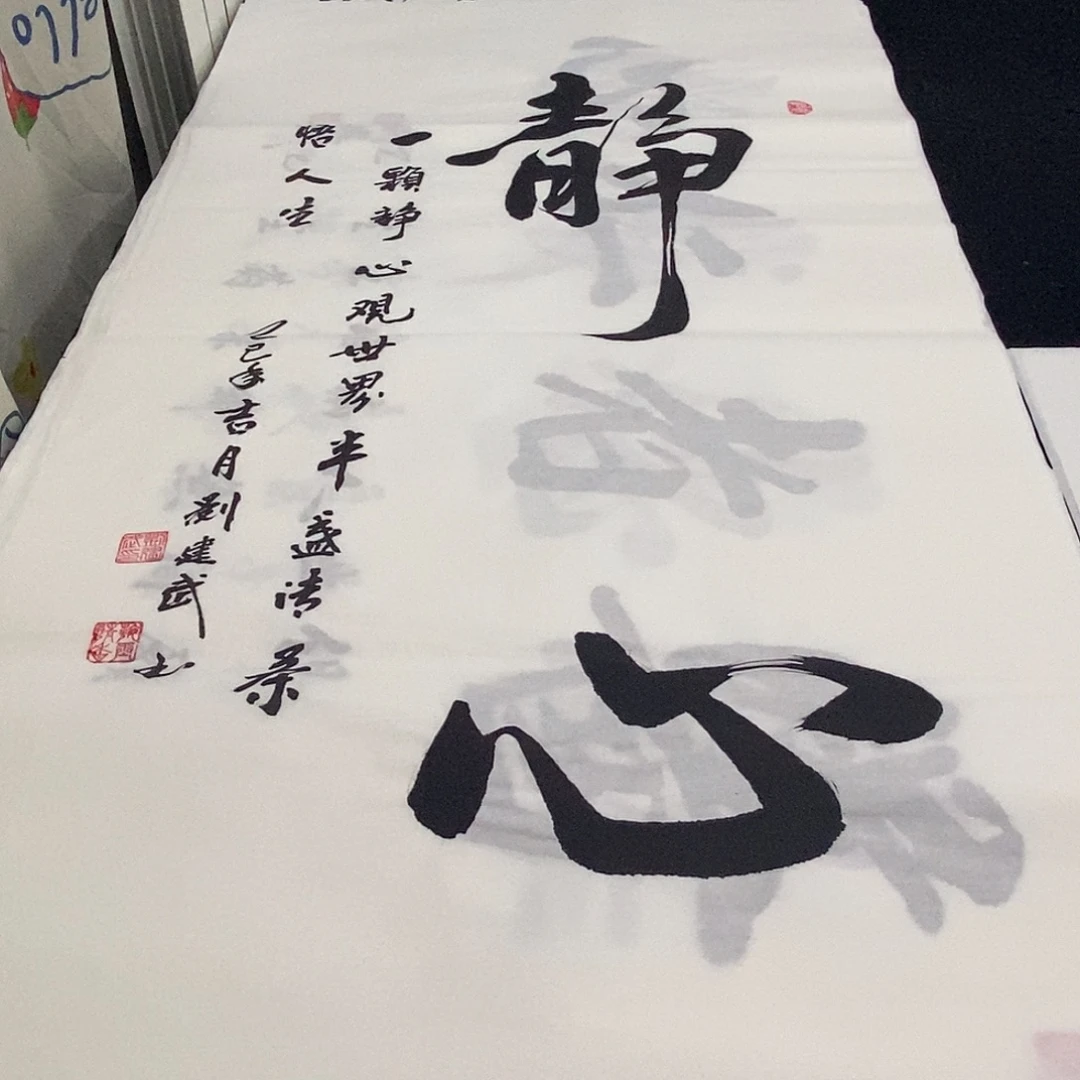 静心
一颗静心观世界半盏清茶
悟人生
乙巳年吉月刘建武书